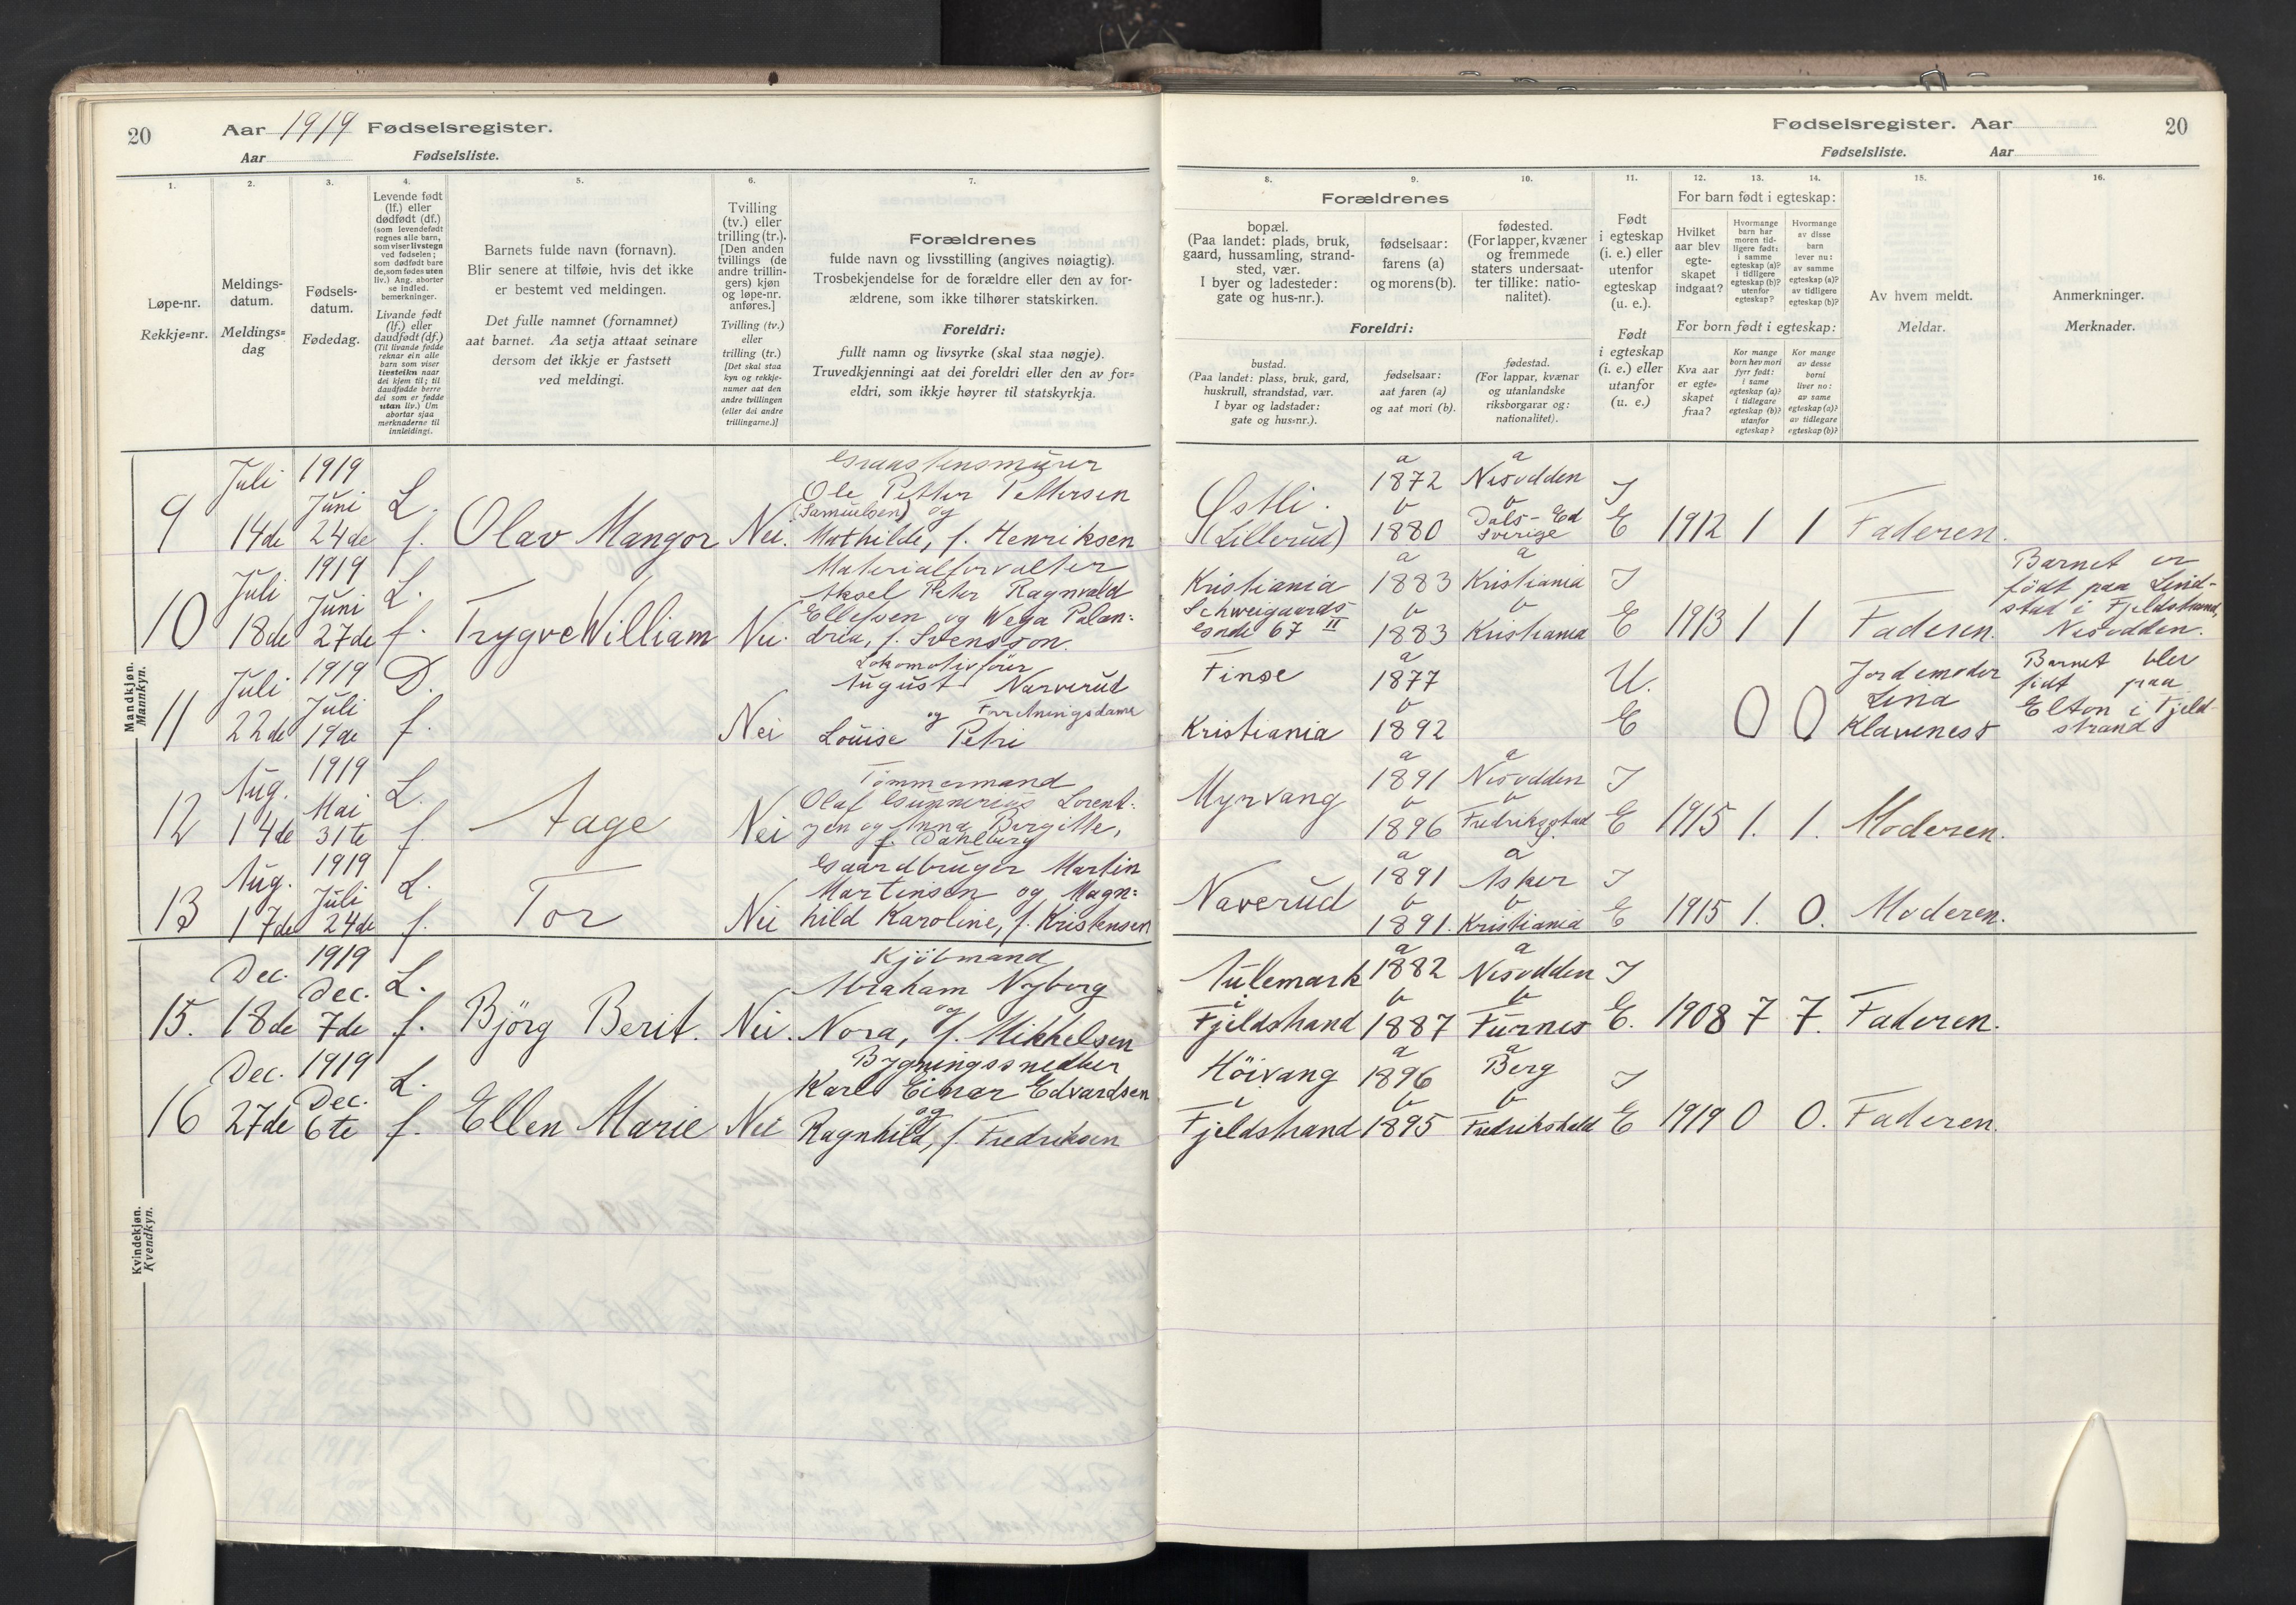 20
Aar 1919 Fødselsregister.
Aar Fødselsliste.
1.
Løpe-nr.
Rekkje=nr.
2.
Meldings-
datum.
Meldings=
dag
3.
Fødsels-
datum.
Fødedag.
4.
Levende født
(lf.) eller
dødfødt (df.)
(som levendefødt
regnes alle barn,
som viser livstegn
ved fødselen;
som dødfødt bare
de, som fødes uten
liv.) Ang. aborter
se indled.
bemerkninger.
Livande født
(lf.) eller
daudfødt (df.)
(Til livande fødde
reknar ein alle
barn som viser
livsteikn naar
dei kjem til; til
daudfødde berre
dei som er fødde
utan liv.) Um
abortar sjaa
merknaderne til
innleidingi.
5.
Barnets fulde navn (fornavn).
Blir senere at tilføie, hvis det ikke
er bestemt ved meldingen.
Det fulle namnet (fornamnet)
aat barnet. Aa setja attaat seinare
dersom det ikkje er fastsett
ved meldingi.
6.
Tvilling
(tv.) eller
trilling (tr.).
[Den anden
tvillings (de
andre trillin-
gers) kjøn
og løpe-nr.
anføres.]
Tvilling (tv.)
eller
trilling (tr.)
[Det skal staa
kyn og rekkje-
numer aat den
andre tvillingen
(eller dei andre
trillingarne.)]
7.
Forældrenes
fulde navn og livsstilling (angives nøiagtig).
Trosbekjendelse for de forældre eller den av for-
ældrene, som ikke tilhører statskirken.
Foreldri:
fullt namn og livsyrke (skal staa nøgje).
Truvedkjenningi aat dei foreldri eller den av for=
eldri, som ikkje høyrer til statskyrkja.
Mandkjøn.
Mannkyn.
9
Juli
14de
1919
Juni
24de
L.
f.
Olav Mangor
Nei.
Graastensmurer
Ole Petter Pettersen
(Samuelsen) og
Mathilde, f. Henriksen
10
Juli
18de
1919
Juni
27de
L.
f.
Trygve William
Nei.
Materialforvalter
Aksel Peter Ragnvald
Ellefsen og Wega Palan=
dria, f. Svensson.
11
Juli
22de
1919
Juli
19de
D.
f.
Nei
Lokomotivfører
August Narverud
og Forretningsdame
Louise Petri
12
Aug.
14de
1919
Mai
31te
L.
f.
Aage
Nei
Tømmermand
Olaf Gunnerius Lorent=
zen og Anna Birgitte,
f. Dahlberg
13
Aug.
17de
1919
Juli
24de
L.
f.
Tor
Nei
Gaardbruger Martin
Martinsen og Magn=
hild Karoline, f. Kristensen
Kvindekjøn.
Kvendkyn.
15.
Dec.
18de
1919
Dec.
7de
L.
f.
Björg Berit.
Nei.
Kjöbmand
Abraham Nyborg
og
Nora, f. Mikkelsen
16
Dec.
27de
1919
Dec.
6te
L.
f.
Ellen Marie
Nei
Bygningssnedker
Karl Einar Edvardsen
og
Ragnhild, f. Fredriksen
Fødselsregister. Aar
20
Fødselsliste. Aar
8.
Forældrenes
bopæl.
(Paa landet: plads, bruk,
gaard, hussamling, strand-
sted, vær.
I byer og ladesteder:
gate og hus-nr.).
Foreldri:
bustad.
(Paa landet: plass, bruk, gard,
huskrull, strandstad, vær.
I byar og ladstader:
gate og hus=nr.).
9.
fødselsaar:
farens (a)
og morens (b).
fødselsaar:
aat faren (a)
og aat mori (b).
10.
fødested.
(For lapper, kvæner
og fremmede
staters undersaat-
ter tillike: natio-
nalitet).
fødestad.
(For lappar, kvænar
og utanlandske
riksborgarar og:
nationalitet).
11.
Født
i egteskap
(i. e.) eller
utenfor
egteskap
(u. e.).
Født
i egteskap
(i. e.) eller
utanfor
(u. e.)
For barn født i egteskap:
12.
Hvilket
aar blev
egte-
skapet
indgaat?
13.
Hvormange
barn har
moren tid-
ligere født:
i samme
egteskap (a)?
i tidligere
egteskap (b)?
utenfor
egteskap?
14.
Hvormange
av disse
barn
lever nu:
av samme
egteskap (a)?
av tidligere
egteskap (b)?
For born født i egteskap:
Kva aar
er egte=
skapet
fraa?
Kor mange
born hev mori
fyrr født:
i same
egteskap (a)?
i tidlegare
egteskap (b)?
utanfor
egteskap?
Kor mange
av desse
borni
liver no:
av same
egteskap (a)?
av tidlegare
egteskap (b)?
15.
Av hvem meldt.
Meldar.
16.
Anmerkninger.
Merknader.
Østli.
(Lillerud)
a
1872
b
1880
a
Nesodden
b
Dals-Ed
Sverige
I
E
1912
1
1
Faderen.
Kristiania
Schweigaards
Gade 67 II
a
1883
b
1883
a
Kristiania
b
Kristiania
I
E
1913
1
1
Faderen.
Barnet er
født paa Lind-
stad i Fjeldstrand,
Nesodden.
Finse
Kristiania
a
1877
b
1892
U.
E
0
0
Jordemoder
Lina
Klaveness
Barnet blev
født paa
Elton i Fjeld-
strand
Myrvang
a
1891
b
1896
a
Nesodden
b
Fredriksstad
I
E
1915
1.
1.
Moderen.
Naverud
a
1891
b
1891.
a
Asker
b
Kristiania
I
E
1915
1.
0.
Moderen.
Aulemark
i
Fjeldstrand
a
1882
b
1887
a
Nesodden
b
Furnes
I
E.
1908
7
7.
Faderen.
Höivang
i
Fjeldstrand
a
1896
b
1895
a
Berg
b
Fredrikshald
I
E
1919
0
0.
Faderen.